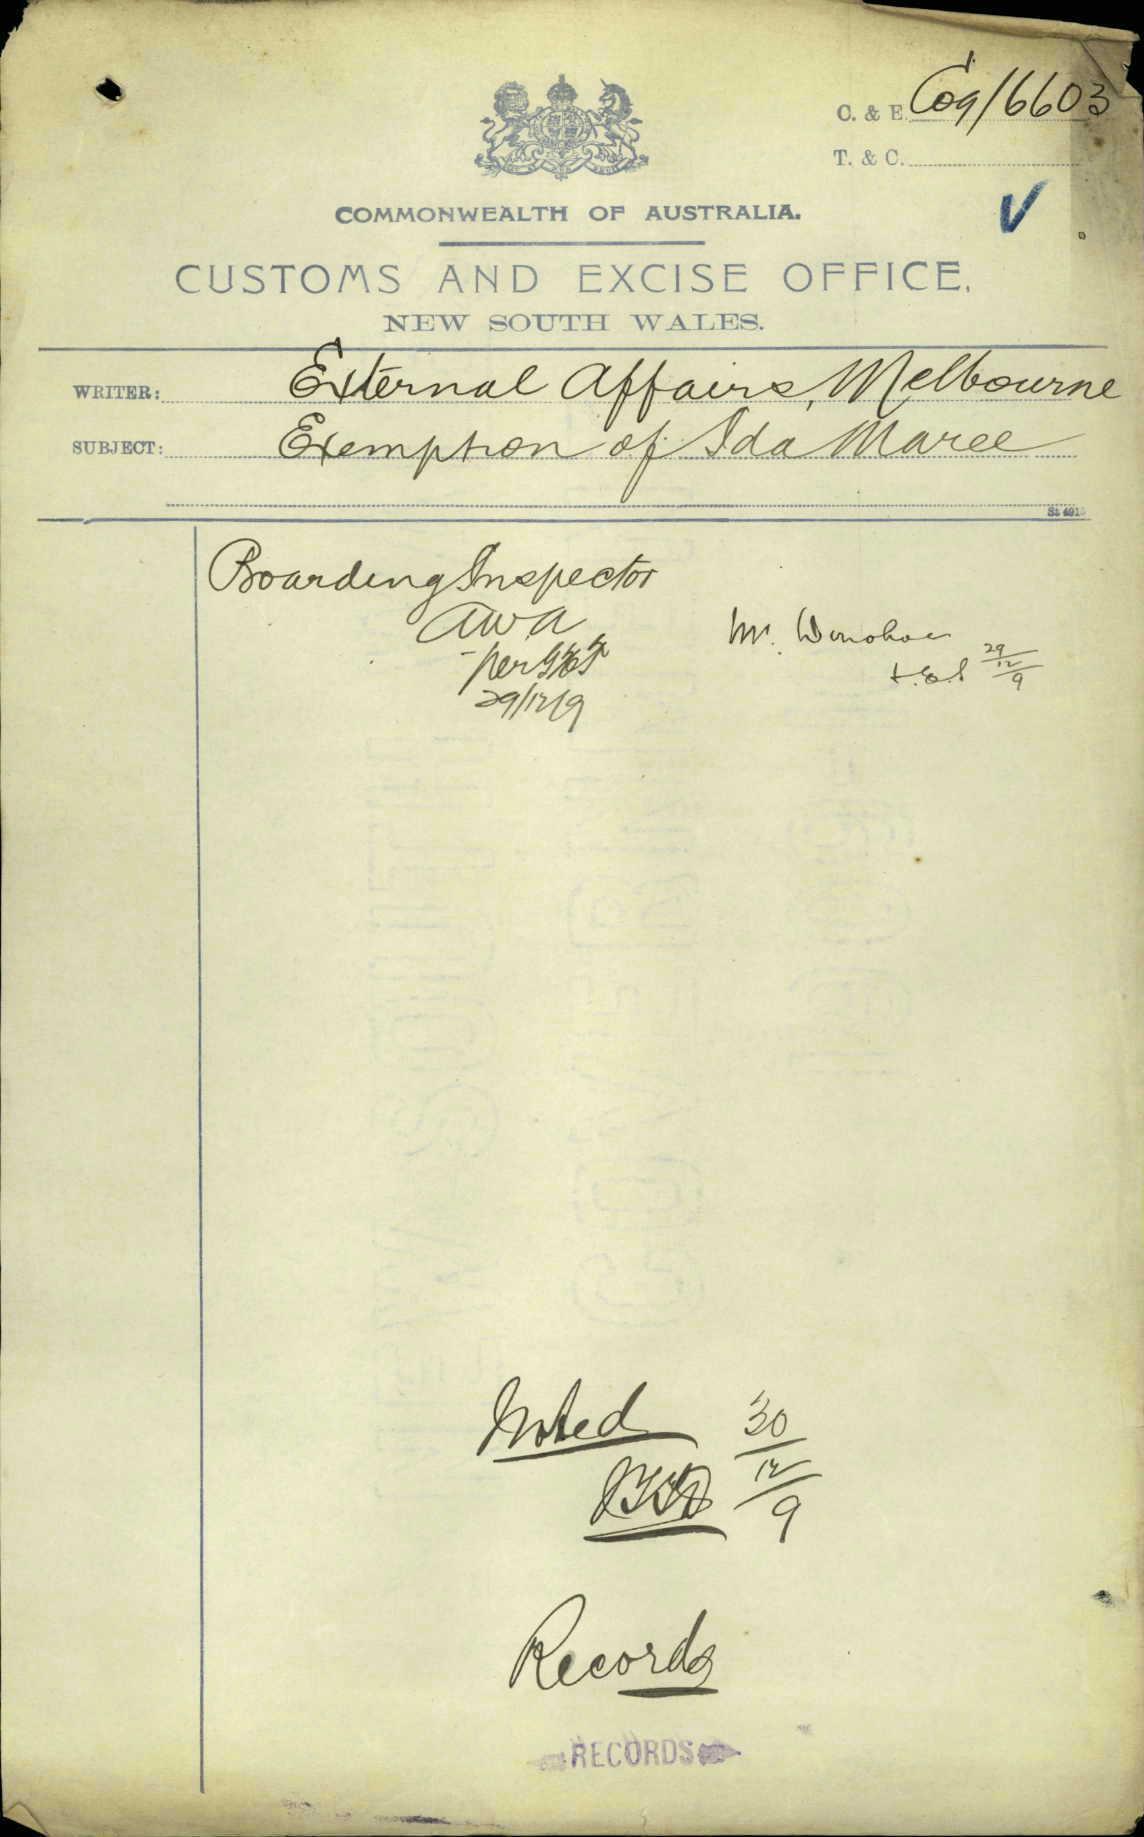 C. & E. C09/6603
T. & C.
COMMONWEALTH OF AUSTRALIA.
CUSTOMS AND EXCISE OFFICE,
NEW SOUTH WALES.
WRITER: External Affairs, Melbourne
SUBJECT: Exemption of Ida Maree
St 4913
Boarding Inspector
AWA
per
29/12/9
Mr. Donohoe
29/12/9
Noted 30/12/9
Records
RECORDS